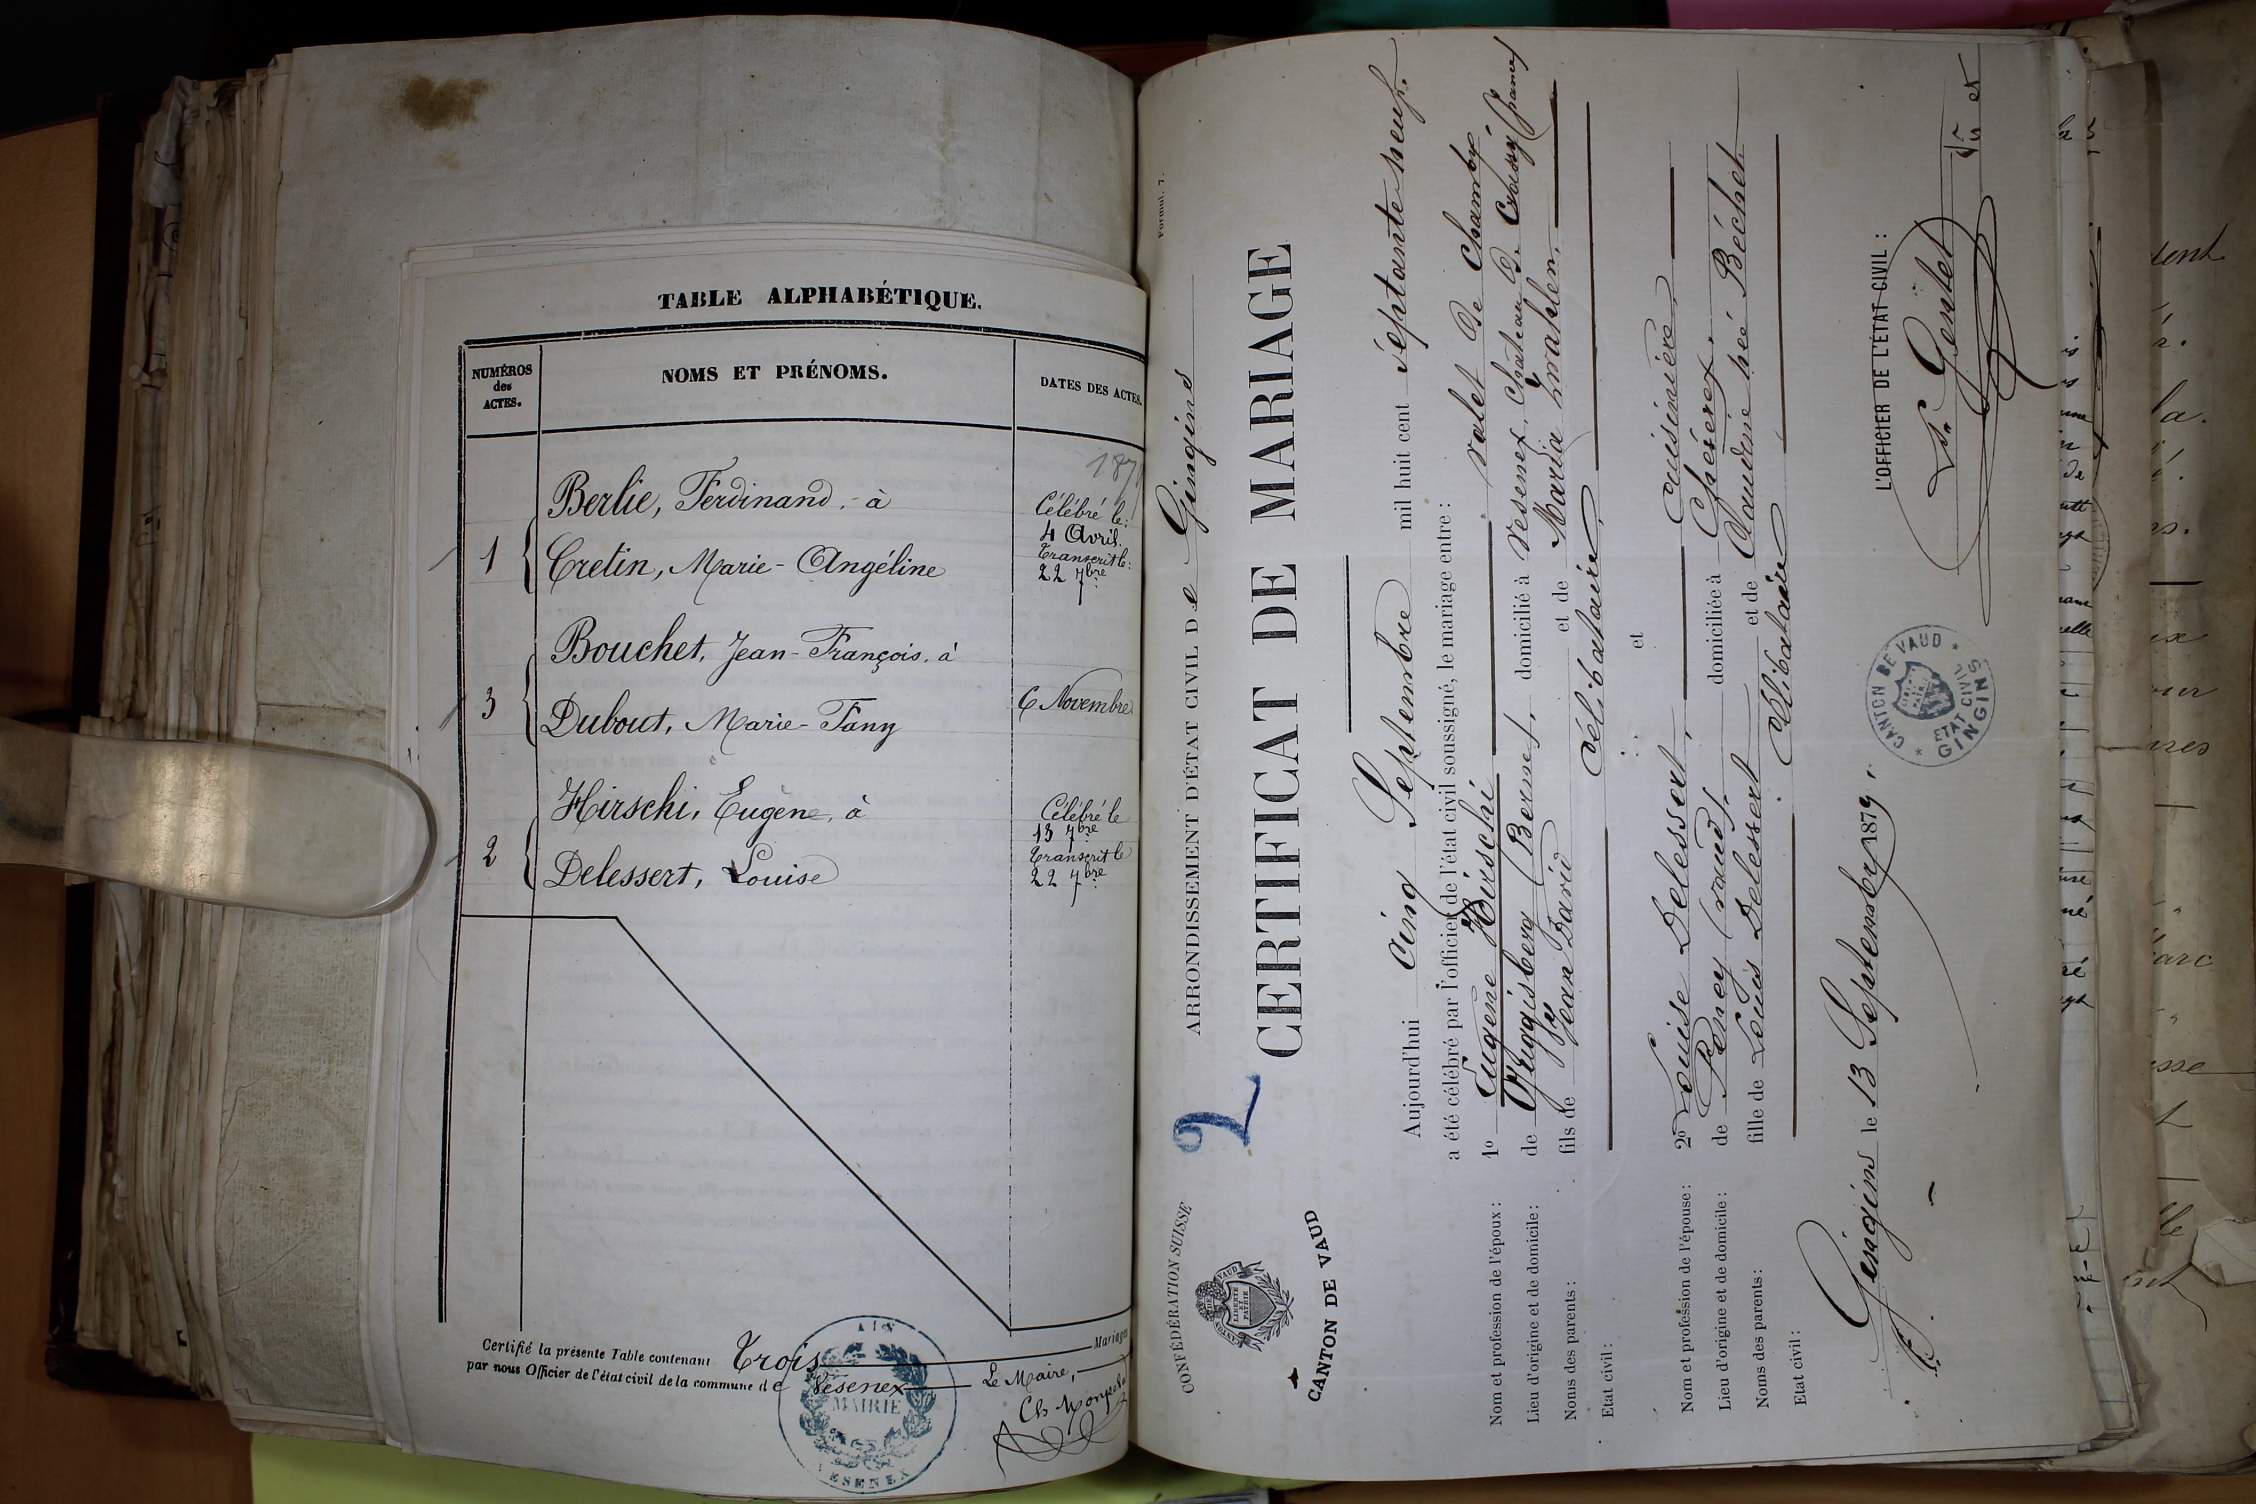 TABLE ALPHABÉTIQUE.
NUMÉROS des ACTES.
NOMS ET PRÉNOMS.
DATES DES ACTES.
187
Berlie, Ferdinand, à
Célébré le:
4 Avril.
1
Cretin, Marie-Angéline
Transcrit le:
22 7bre
Bouchet, Jean-François, à
3
6 Novembre
Dubout, Marie-Fany
Hirschi, Eugène, à
Célébré le
13 7bre
2
Delessert, Louise
Transcrit le
22 7bre
Certifié la présente Table contenant Trois Mariages
par nous Officier de l'état civil de la commune de Vésenex
Le Maire,
AIN
MAIRIE
VESENEX
Formul. 7.
CONFÉDÉRATION SUISSE
CANTON DE VAUD
LIBERTÉ ET PATRIE
CANTON DE VAUD
2
ARRONDISSEMENT D'ÉTAT CIVIL De Gingins
CERTIFICAT DE MARIAGE
Aujourd'hui cinq Septembre mil huit cent septante neuf.
a été célébré par l'officier de l'état civil soussigné, le mariage entre :
Nom et profession de l'époux :
1º Eugène Hirschi valet de Chambre
Lieu d'origine et de domicile :
de Gruggisberg (Berne), domicilié à Vesenex, Chateau de
Noms des parents :
fils de Jean David et de Maria
Etat civil :
célibataire
et
Nom et profession de l'épouse :
2º Louise Delessert, cuisinière,
Lieu d'origine et de domicile :
de Peney (Vaud), domiciliée à Chéserex.
Noms des parents :
fille de Louis Delessert et de Claudine née Béchet
Etat civil :
célibataire
Gingins le 13 Septembre 1879.
L'OFFICIER DE L'ÉTAT CIVIL :
CANTON DE VAUD
ETAT CIVIL
GINGINS